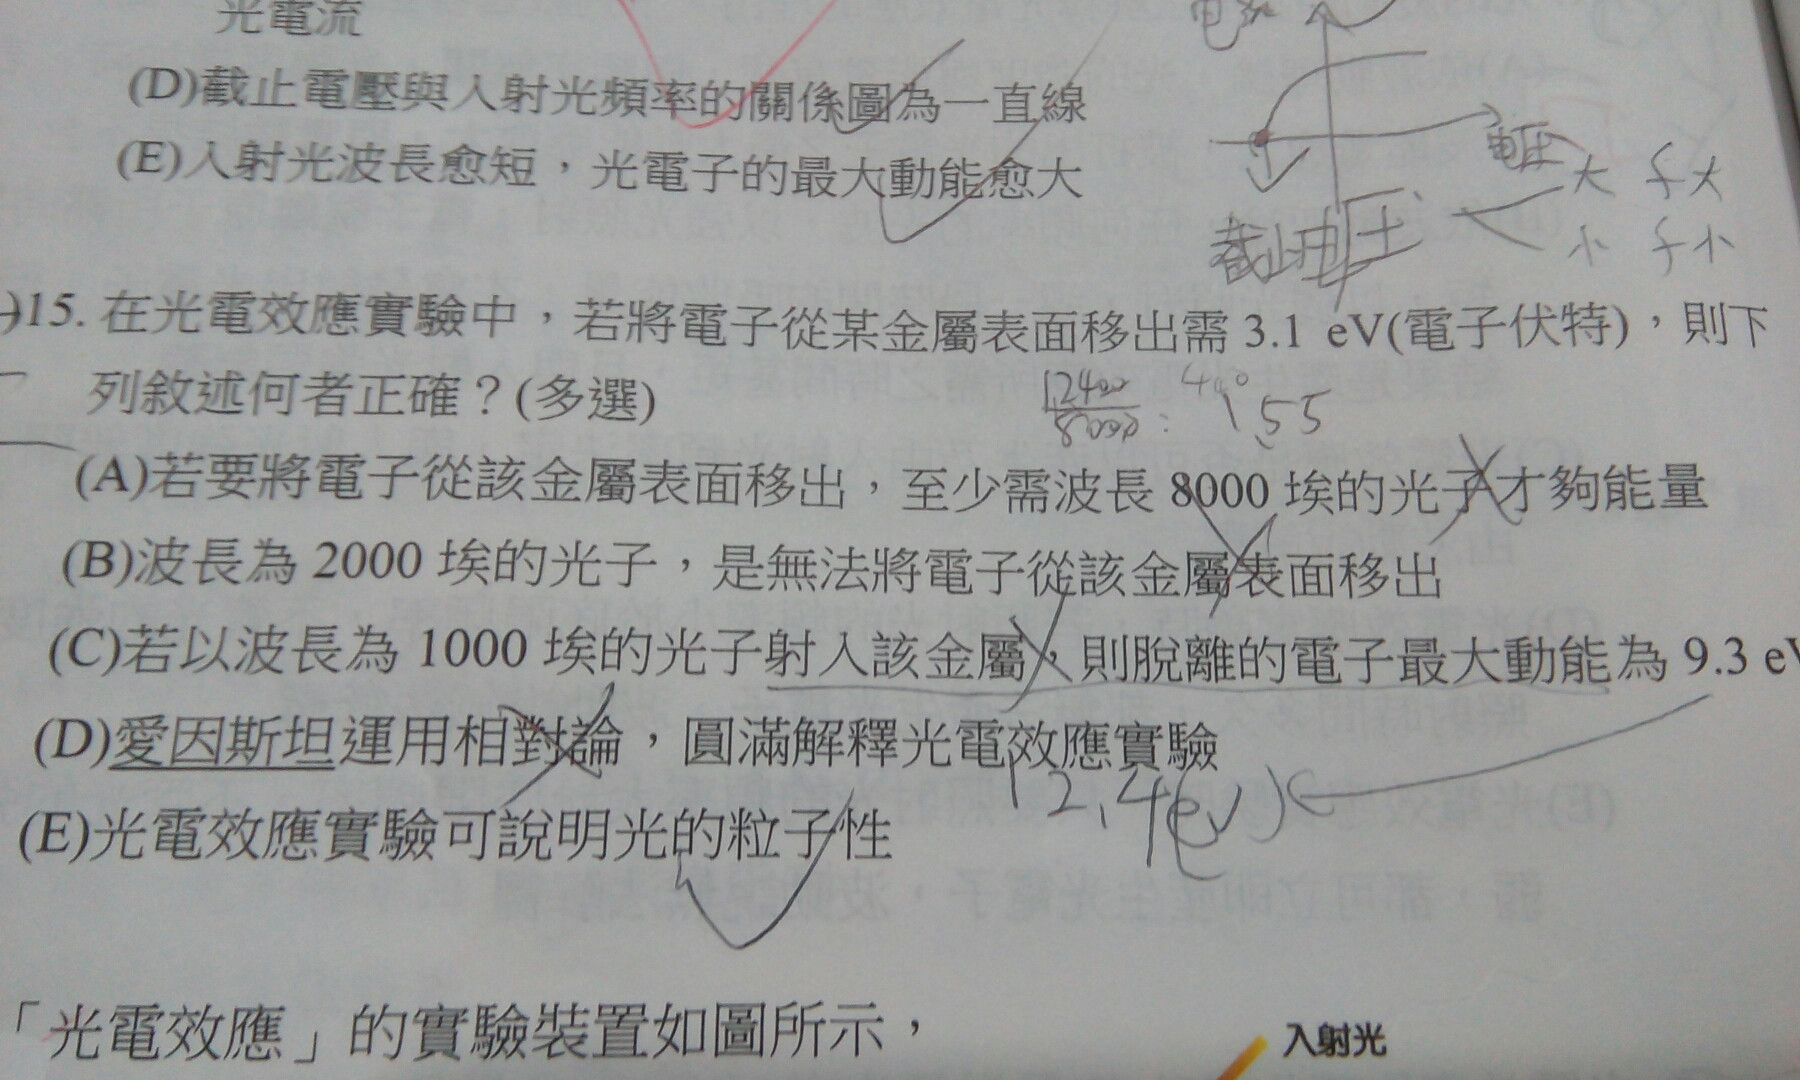 光電流
(D)截止電壓與入射光頻率的關係圖為一直線
(E)入射光波長愈短，光電子的最大動能愈大
電壓
大 子大
小 子小
截止電壓
15. 在光電效應實驗中，若將電子從某金屬表面移出需 3.1 eV(電子伏特)，則下
列敘述何者正確？(多選)
12400
8000
400
1.55
(A)若要將電子從該金屬表面移出，至少需波長 8000 埃的光子才夠能量
(B)波長為 2000 埃的光子，是無法將電子從該金屬表面移出
(C)若以波長為 1000 埃的光子射入該金屬，則脫離的電子最大動能為 9.3 eV
(D)愛因斯坦運用相對論，圓滿解釋光電效應實驗
12.4(eV)
(E)光電效應實驗可說明光的粒子性
「光電效應」的實驗裝置如圖所示，
入射光